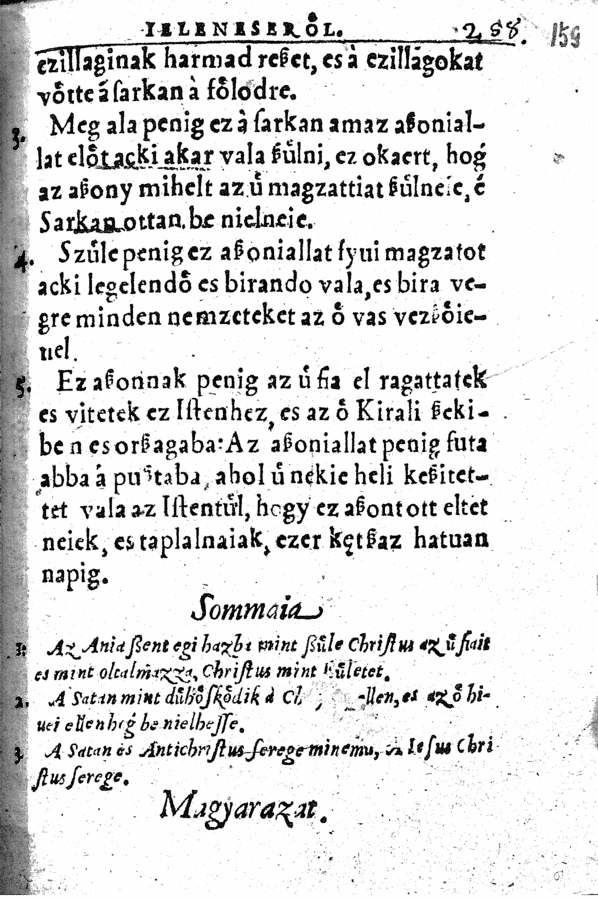 IELENESEROͤL. 258. 159
ezillaginak harmad reßet, es à ezillagokat
voͤtte á ſarkan à foͤlodre.
3. Meg ala penig ez à ſarkan amaz aßonial-
lat eloͤt acki akar vala ßuͤlni, ez okaert, hog
az aßony mihelt az uͤ magzattiat ßuͤlneie, é
Sarkan ottan be nielneie.
4. Szuͤle penig ez aßoniallat fyui magzatot
acki legelendoͤ es birando vala, es bira ve-
gre minden nemzeteket az oͤ vas vezßoͤie-
uel.
5. Ez aßonnak penig az uͤ fia el ragattatek
es vitetek ez Iſtenhez, es az oͤ Kirali ßeki-
ben es orßagaba: Az aßoniallat penig futa
abba á pustaba, ahol uͤ nekie heli keßitet-
tet vala az Iſtentuͤl, hogy ez aßont ott eltet
neiek, es taplalnaiak, ezer kętßaz hatuan
napig.
Sommaia
1. Az Ania ßent egi hazba mint ßuͤle Chriſtus az uͤ fiait
es mint oltalmazza, Chriſtus mint ßuͤletet.
2. A Satan mint duͤhoͤſkoͤdik à ellen, es az oͤ hi-
uei ellen hog be nielheſſe.
3. A Satan es Antichriſtus ſerege minemu, Ieſus Chri
ſtus ſerege.
Magyarazat.